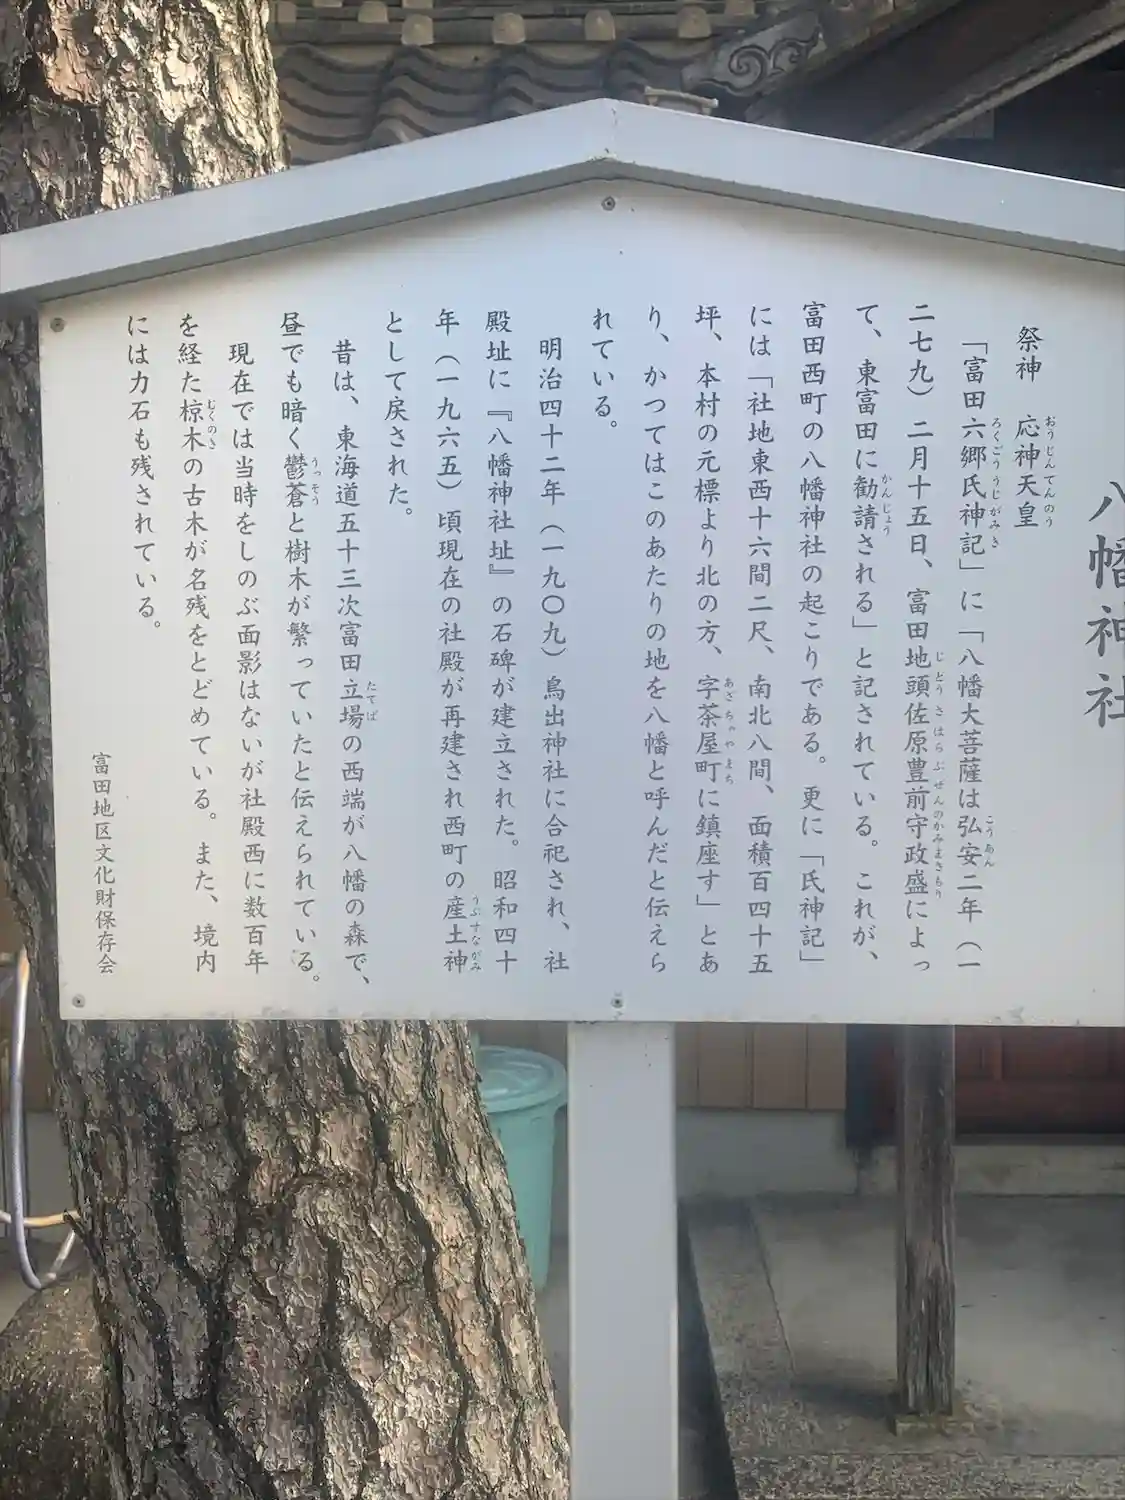 八幡神社
祭神　応神天皇
おうじんてんのう
「富田六郷氏神記」に「八幡大菩薩は弘安二年（一
ろくごううじがみき
こうあん
二七九）二月十五日、富田地頭佐原豊前守政盛によっ
じとうさはらぶぜんのかみまさもり
て、東富田に勧請される」と記されている。これが、
かんじょう
富田西町の八幡神社の起こりである。更に「氏神記」
には「社地東西十六間二尺、南北八間、面積百四十五
坪、本村の元標より北の方、字茶屋町に鎮座す」とあ
あざちゃやまち
り、かつてはこのあたりの地を八幡と呼んだと伝えら
れている。
明治四十二年（一九〇九）鳥出神社に合祀され、社
殿址に『八幡神社址』の石碑が建立された。昭和四十
年（一九六五）頃現在の社殿が再建され西町の産土神
うぶすながみ
として戻された。
昔は、東海道五十三次富田立場の西端が八幡の森で、
たてば
昼でも暗く鬱蒼と樹木が繁っていたと伝えられている。
うっそう
現在では当時をしのぶ面影はないが社殿西に数百年
を経た椋木の古木が名残をとどめている。また、境内
むくのき
には力石も残されている。
富田地区文化財保存会